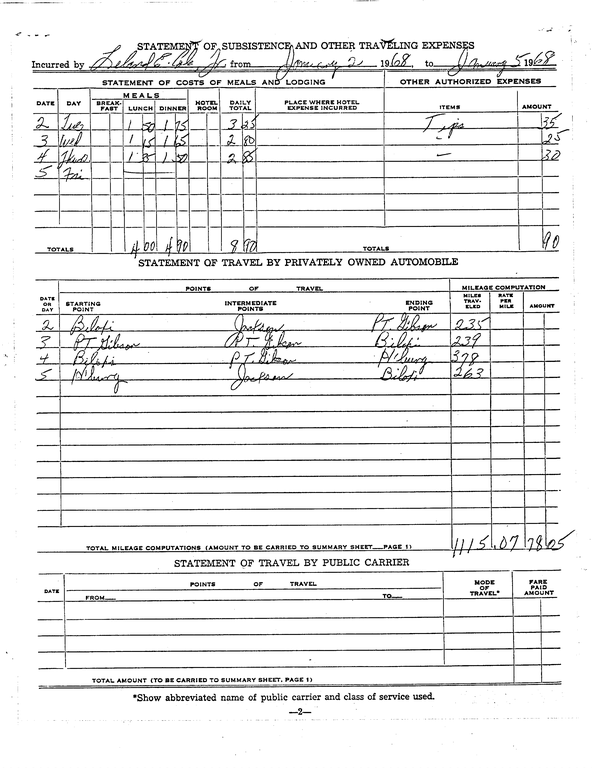 STATEMENT OF SUBSISTENCE AND OTHER TRAVELING EXPENSES
Incurred by Leland E. Cole, Jr from January 2 1968, to January 5 1968
STATEMENT OF COSTS OF MEALS AND LODGING OTHER AUTHORIZED EXPENSES
DATE DAY MEALS BREAK-FAST LUNCH DINNER HOTEL ROOM DAILY TOTAL PLACE WHERE HOTEL EXPENSE INCURRED ITEMS AMOUNT
2 Tues 1 50 1 75 3 25 Tips 35
3 Wed 1 15 1 65 2 80 25
4 Thurs 1 35 1 50 2 85 — 30
5 Fri
TOTALS 4 00 4 90 8 90 TOTALS 90
STATEMENT OF TRAVEL BY PRIVATELY OWNED AUTOMOBILE
POINTS OF TRAVEL MILEAGE COMPUTATION
DATE OR DAY STARTING POINT INTERMEDIATE POINTS ENDING POINT MILES TRAV-ELED RATE PER MILE AMOUNT
2 Biloxi Jackson PT. Gibson 235
3 PT Gibson PT Gibson Biloxi 239
4 Biloxi PT. Gibson H'burg 378
5 H'burg Jackson Biloxi 263
TOTAL MILEAGE COMPUTATIONS (AMOUNT TO BE CARRIED TO SUMMARY SHEET—PAGE 1) 1115 .07 78 05
STATEMENT OF TRAVEL BY PUBLIC CARRIER
DATE POINTS OF TRAVEL MODE OF TRAVEL* FARE PAID AMOUNT
FROM— TO—
TOTAL AMOUNT (TO BE CARRIED TO SUMMARY SHEET, PAGE 1)
*Show abbreviated name of public carrier and class of service used.
—2—